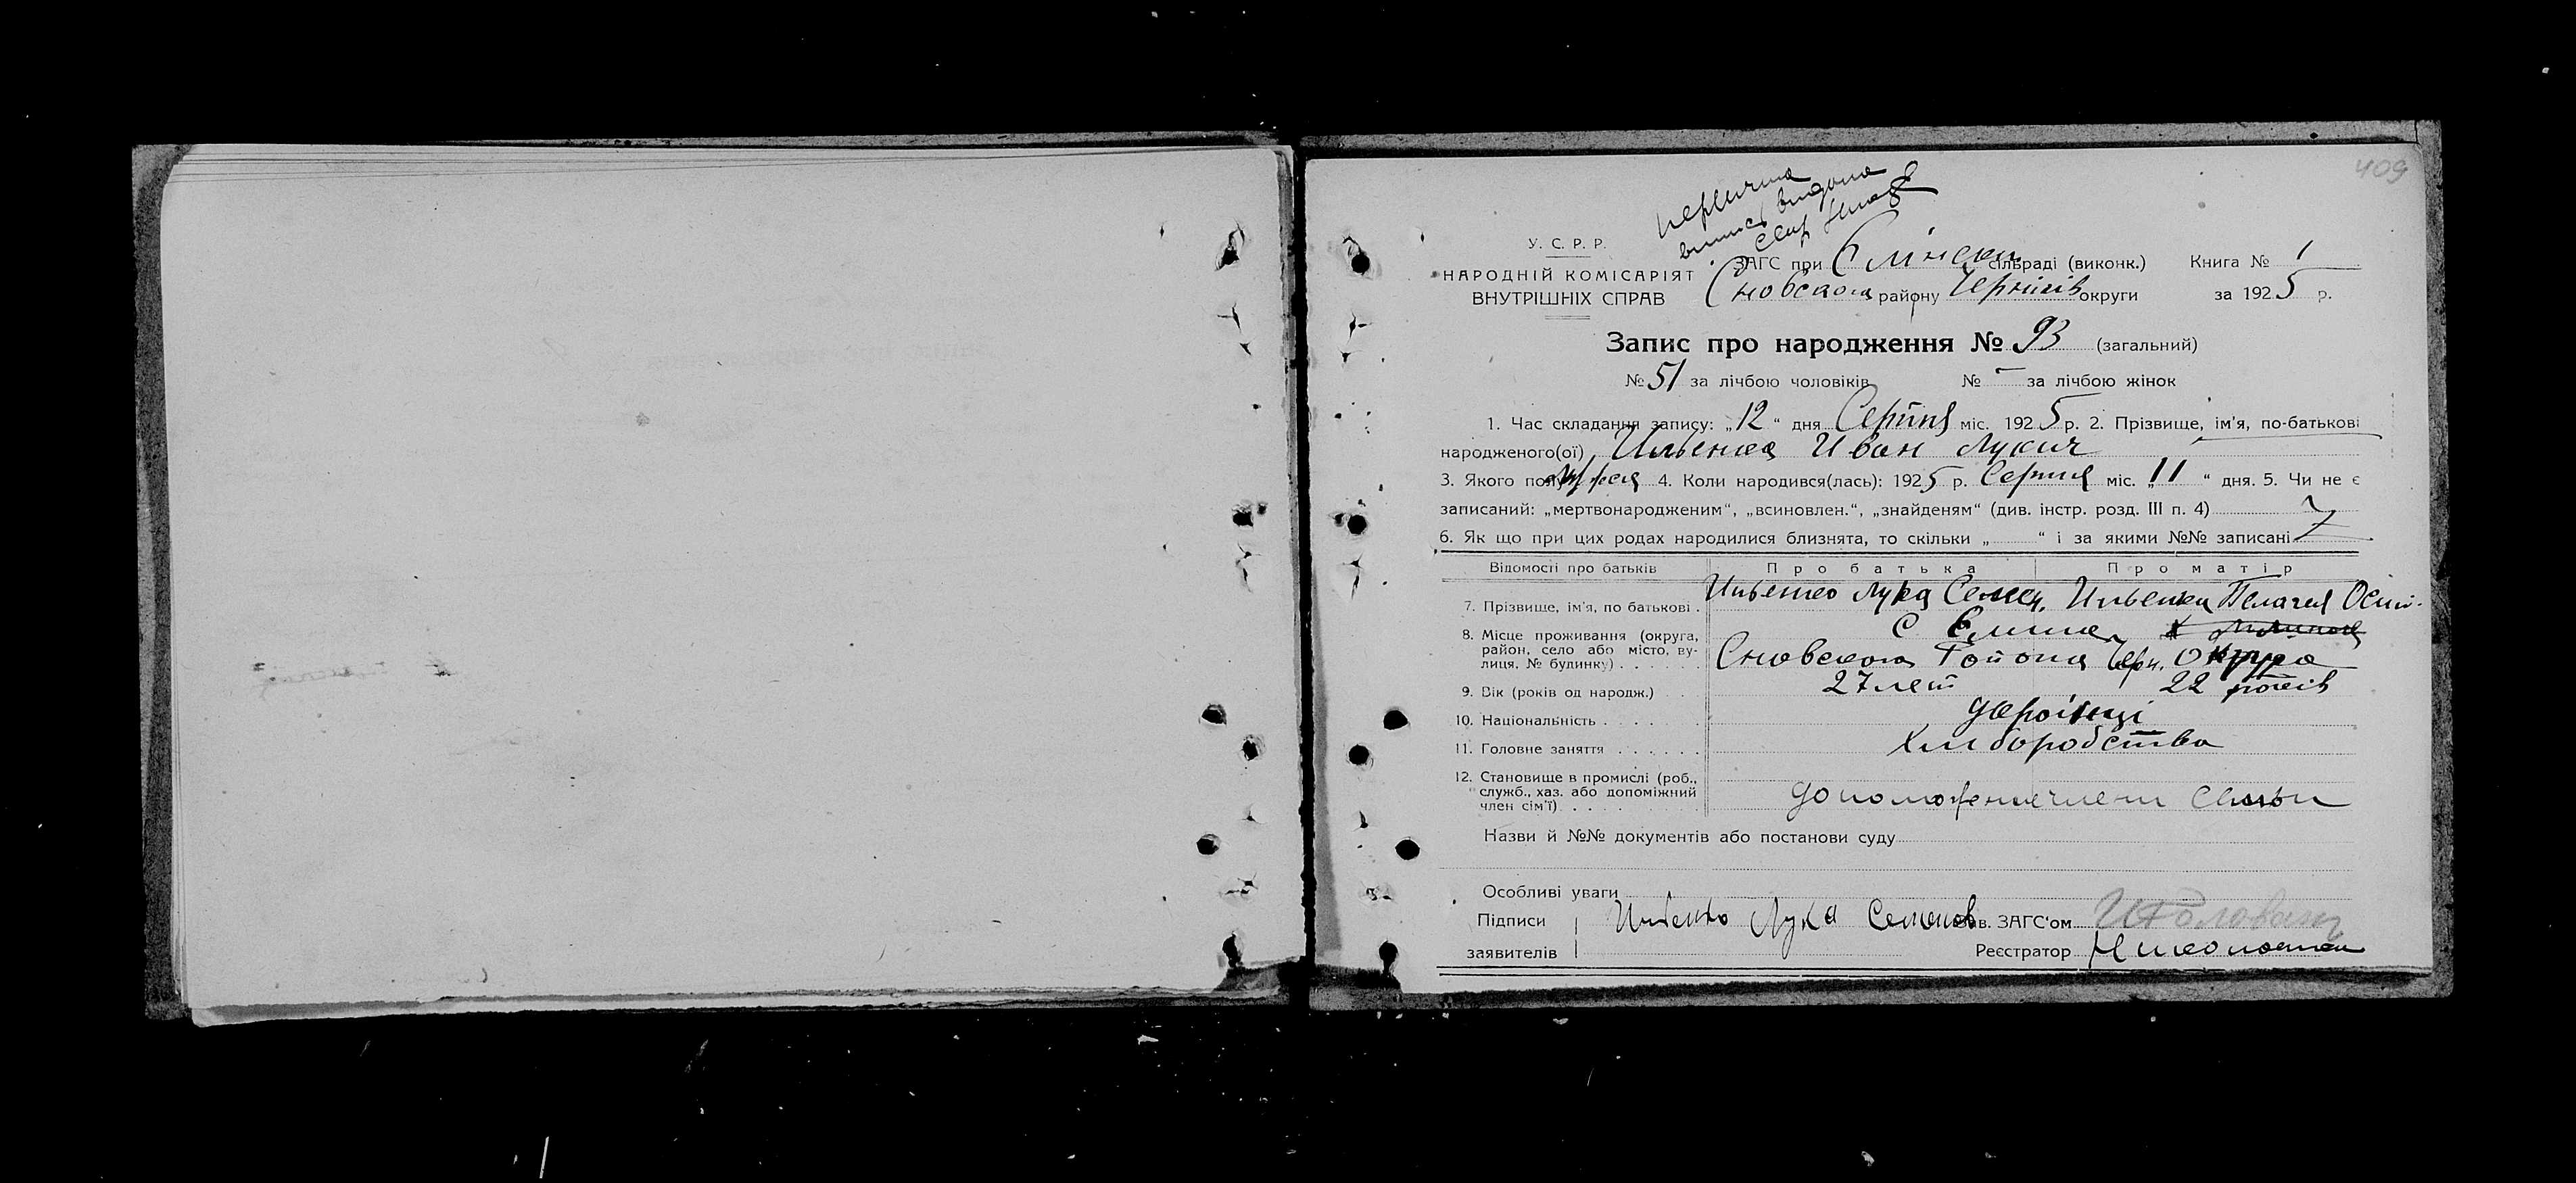 409
первична
видана
У. С. Р. Р.
НАРОДНІЙ КОМІСАРІЯТ
ВНУТРІШНІХ СПРАВ
ЗАГС при Єлінски сільраді (виконк.) Книга № 1
Сновского району Чернігів округи за 1925 р.
Запис про народження № 93 (загальний)
№ 51 за лічбою чоловіків № - за лічбою жінок
1. Час складання запису: „12“ дня Серпня міс. 1925 р. 2. Прізвище, ім'я, по-батькові
народженого(ої) Ильенка Иван Лукич
3. Якого полу 4. Коли народився(лась): 1925 р. Серпня міс. „11“ дня. 5. Чи не є
записаний: „мертвонародженим“, „всиновлен.“, „знайденям“ (див. інстр. розд. III п. 4)
6. Як що при цих родах народилися близнята, то скільки „ “ і за якими №№ записані
Відомості про батьків Про батька Про матір
7. Прізвище, ім'я, по батькові . Ильенко Лука Семен. Ильенка Пелагея Осип.
8. Місце проживання (округа, район, село або місто, вулиця, № будинку) . . . . . . с Єлина
Сновского Района Черн. Округа
9. Вік (років од народж.) . . 27 лет 22 років
10. Національність . . . . . . Україінці
11. Головне заняття . . . . . . Хлиборобства
12. Становище в промислі (роб., служб., хаз. або допоміжний член сім'ї) . . . . . члени семьи
Назви й №№ документів або постанови суду
Особливі уваги
Підписи Ильенко Лука Семенов Зав. ЗАГС'ом
заявителів Реєстратор